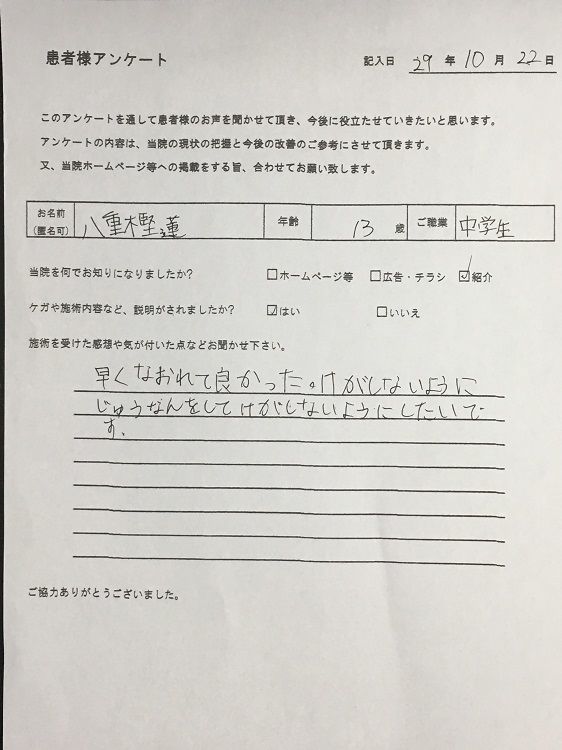 患者様アンケート
記入日 29 年 10 月 22 日
このアンケートを通して患者様のお声を聞かせて頂き、今後に役立たせていきたいと思います。
アンケートの内容は、当院の現状の把握と今後の改善のご参考にさせて頂きます。
又、当院ホームページ等への掲載をする旨、合わせてお願い致します。
お名前 (匿名可) 八重樫蓮 年齢 13 歳 ご職業 中学生
当院を何でお知りになりましたか? □ホームページ等 □広告・チラシ ☑紹介
ケガや施術内容など、説明がされましたか? ☑はい □いいえ
施術を受けた感想や気が付いた点などお聞かせ下さい。
早くなおれて良かった。けがしないように
じゅうなんをしてけがしないようにしたいで
す。
ご協力ありがとうございました。